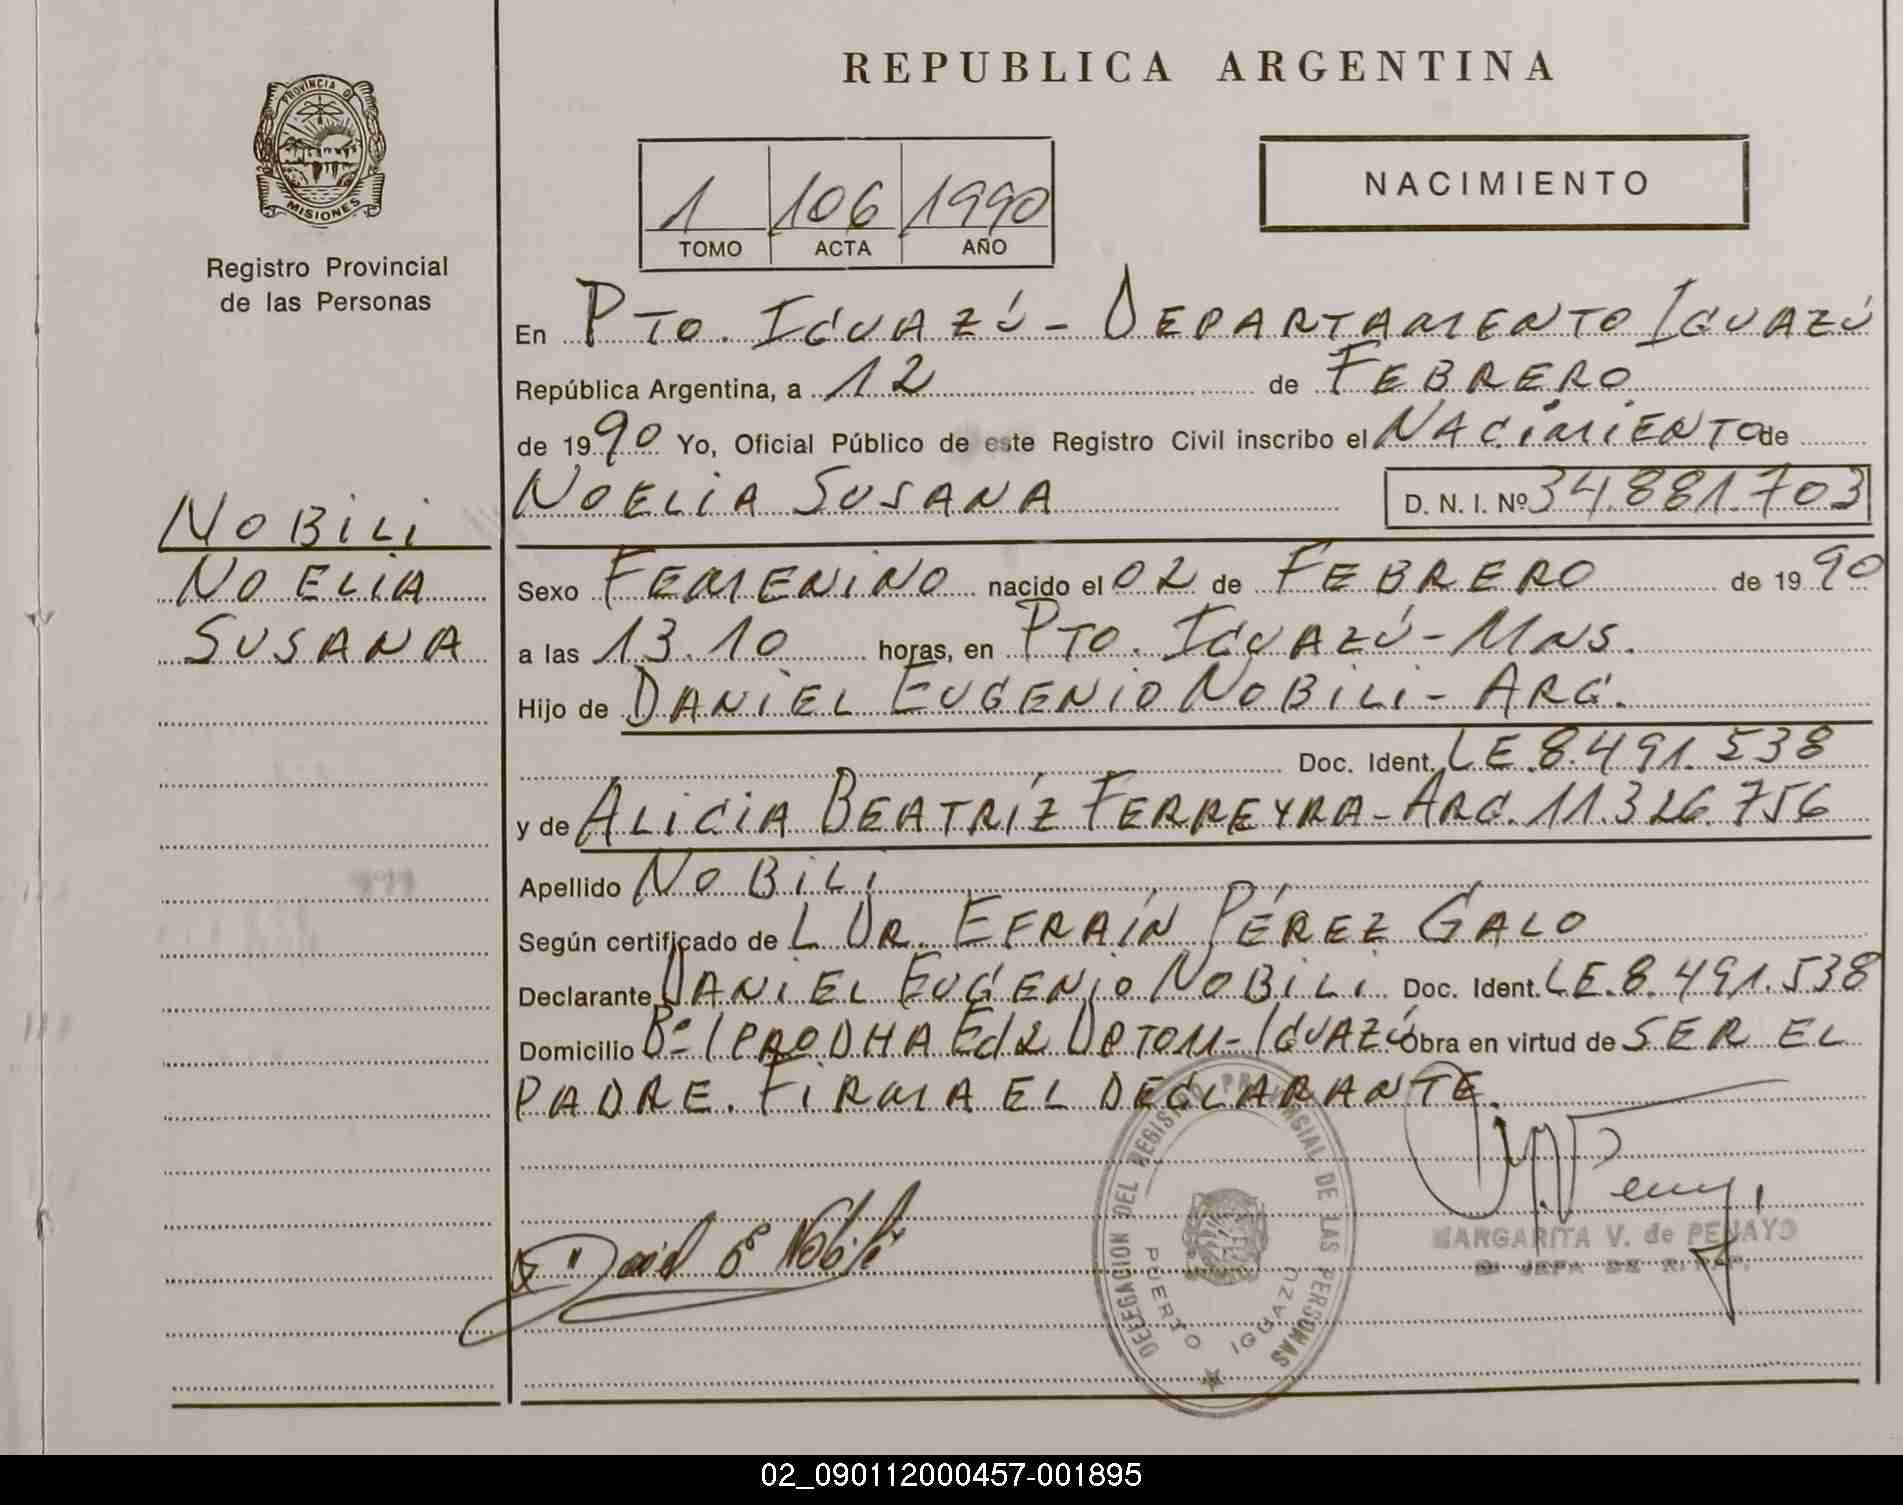 REPUBLICA ARGENTINA
PROVINCIA DE
MISIONES
Registro Provincial
de las Personas
1 106 1990
TOMO ACTA AÑO
NACIMIENTO
En PTO. IGUAZÚ - DEPARTAMENTO IGUAZÚ
República Argentina, a 12 de FEBRERO
de 1990 Yo, Oficial Público de este Registro Civil inscribo el NACIMIENTO de
NOELIA SUSANA D. N. I. Nº 34.881.703
NOBILI
NOELIA
SUSANA
Sexo FEMENINO nacido el 02 de FEBRERO de 1990
a las 13.10 horas, en PTO. IGUAZÚ - MNS.
Hijo de DANIEL EUGENIO NOBILI - ARG.
Doc. Ident. LE.8.491.538
y de ALICIA BEATRÍZ FERREYRA - ARG. 11.326.756
Apellido NOBILI
Según certificado de L DR. EFRAÍN PÉREZ GALO
Declarante DANIEL EUGENIO NOBILI Doc. Ident. LE.8.491.538
Domicilio Bº IPRODHA Ed 2 DPTO 11 - IGUAZÚ Obra en virtud de SER EL
PADRE. FIRMA EL DECLARANTE.
Daniel E Nobili
DELEGACION DEL REGISTRO PROVINCIAL DE LAS PERSONAS
PUERTO IGUAZU
MARGARITA V. de PENAYO
02_090112000457-001895